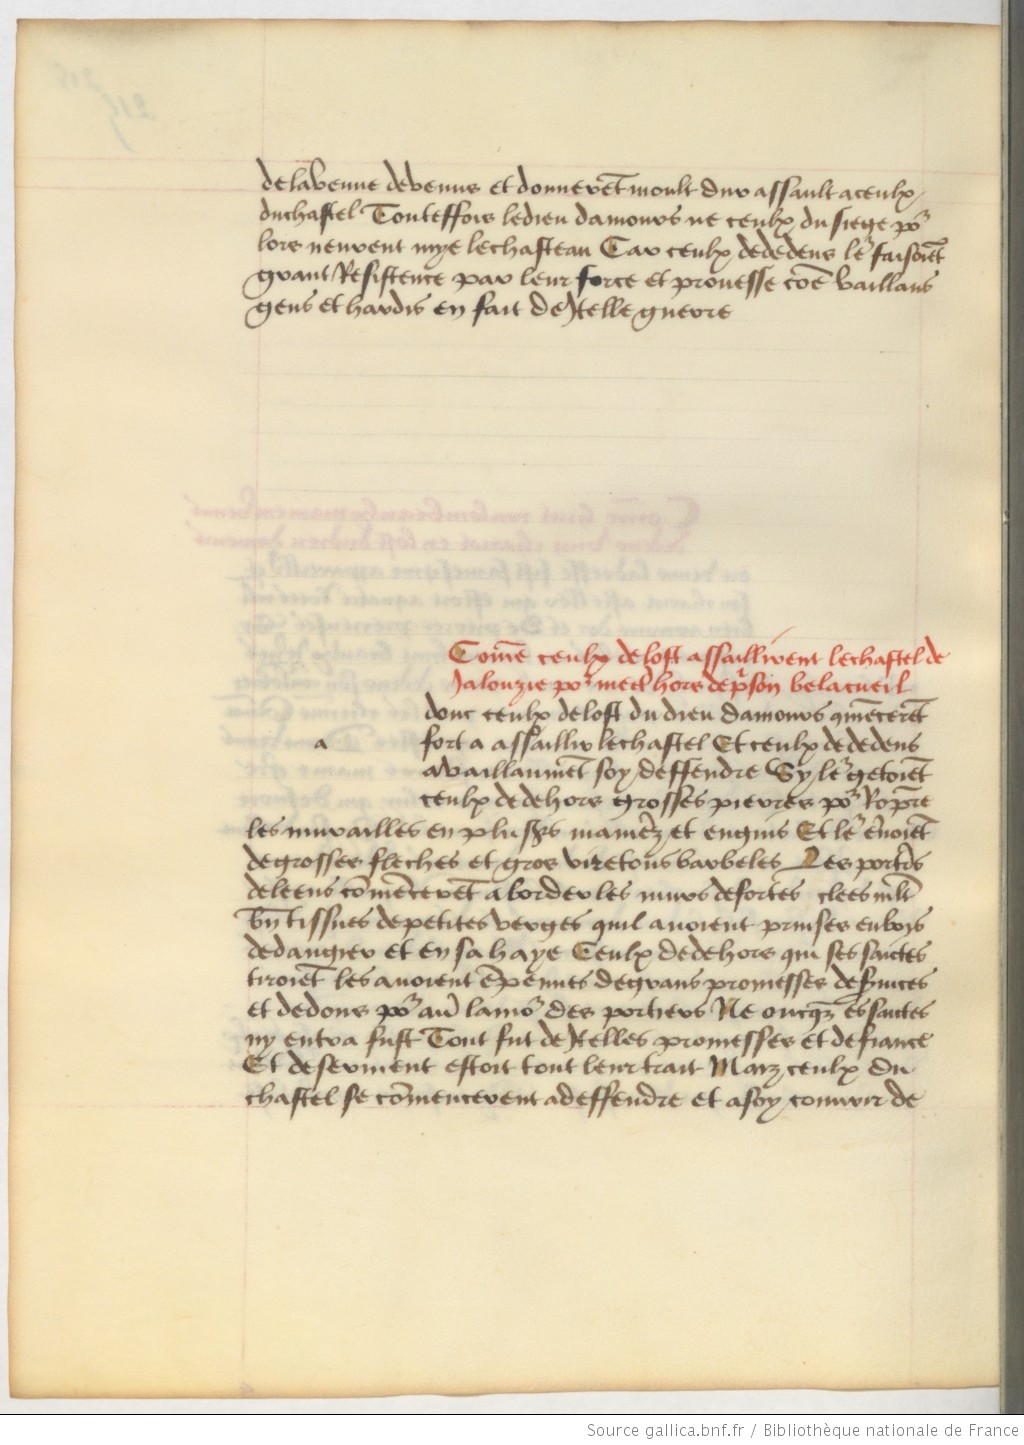 de la venue de venus et donnerēt moult dur assault a ceulx
du chastel Touteffois le dieu damours ne ceulx du siege po᷑
lors neurent mye le chasteau Car ceulx de dedens le᷑ faisoiēt
grant Resistence par leur force et prouesse cōe vaillans
gens et hardis en fait de telle guerre
Cōme ceulx de lost assaillirent le chastel de
Jalouzie po᷑ mect̄ hors de p̄son belacueil
donc ceulx de lost du dieu damours 9mēcerēt
a fort a assaillir le chastel Et ceulx de dedens
a vaillanmēt soy deffendre Sy le᷑ getoiēt
ceulx de dehors grosses pierres po᷑ Rōpre
les murailles en plus᷑s manie᷑z et engins Et le᷑ ēuoiēt
de grosses fleches et gros viretons barbeles Les port᷑s
de leens cōmēcerēt a border les murs de fortes clees mlt̄
bn̄ tissues de petites verges quil auoient prinses en bois
de dangier et en sa haye Ceulx de dehors qui ses saictes
tiroiēt les auoient ēpennes de grans promesses de s᷑uices
et de dons po᷑ au᷑ lamo᷑ des portiers Ne oncq᷑z es saictes
ny entra fust Tout fut de telles promesses et de fiance
Et de serment estoit tout leur trait Maiz ceulx du
chastel se cōmencerent a deffendre et a soy couurir de
Source gallica.bnf.fr / Bibliothèque nationale de France